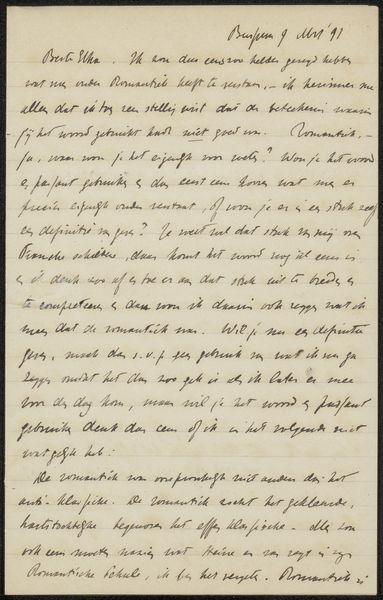 Bussum 9 Nov' 91
Beste Elka. Ik kon dus eens zoo helder gezegd hebben
wat men onder Romantiek heeft te verstaan, – ik herinner me
alleen dat ik toen zeer stellig wist dat de beteekenis waarin
jij het woord gebruikt hadt niet goed was. Romantiek, –
ja, waar wou je het eigenlijk voor weten? Wou je het woord
en passant gebruiken en dus eerst eens hooren wat men er
precies eigenlijk onder verstaat, of wou je er in een stuk zelf
een definitie van geven? Je weet wel dat stuk van mij over
Fransche schilders, daar komt het woord nog al eens in
en ik denk zoo af en toe er aan dat stuk uit te breiden en
te completeeren en dan wou ik daarin ook zeggen wat ik
meen dat de romantiek was. Wil je nu een definitie
geven, maak dan s.v.p. geen gebruik van wat ik nu ga
zeggen omdat het dan zoo gek is als ik later er mee
voor den dag kom, maar wil je het woord en passant
gebruiken denk dan eens of ik in het volgende niet
wat gelijk heb:
De romantiek was oorspronkelijk niet anders dan het
anti-klassieke. De romantiek zocht het gekleurde,
hartstochtelijke tegenover het effen klassieke – Men zou
ook eens moeten nazien wat Heine er van zegt in zijn
Romantische Schule, ik ben het vergeten. Romantiek is